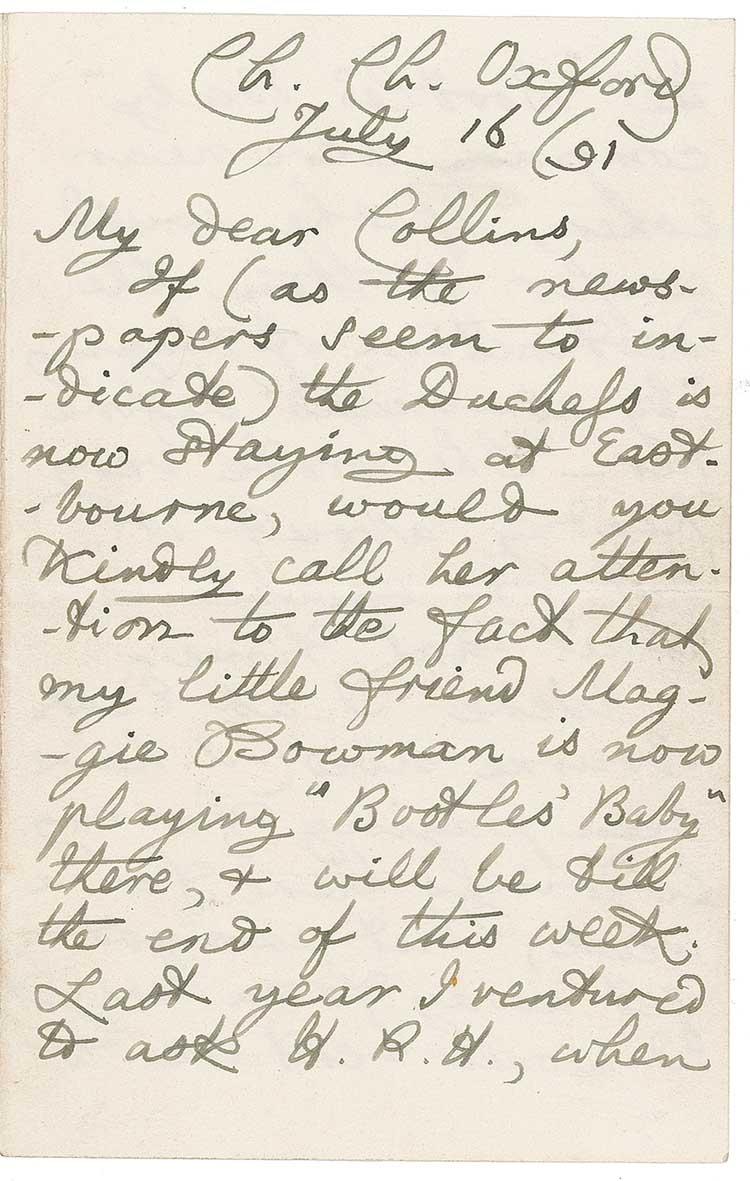 Ch. Ch. Oxford
July 16 /91
My dear Collins,
If (as the news-
-papers seem to in-
-dicate) the Duchess is
now staying at East-
-bourne, would you
kindly call her atten-
-tion to the fact that
my little friend Mag-
-gie Bowman is now
playing "Bootles' Baby"
there, & will be till
the end of this week.
Last year I ventured
to ask H. R. H., when